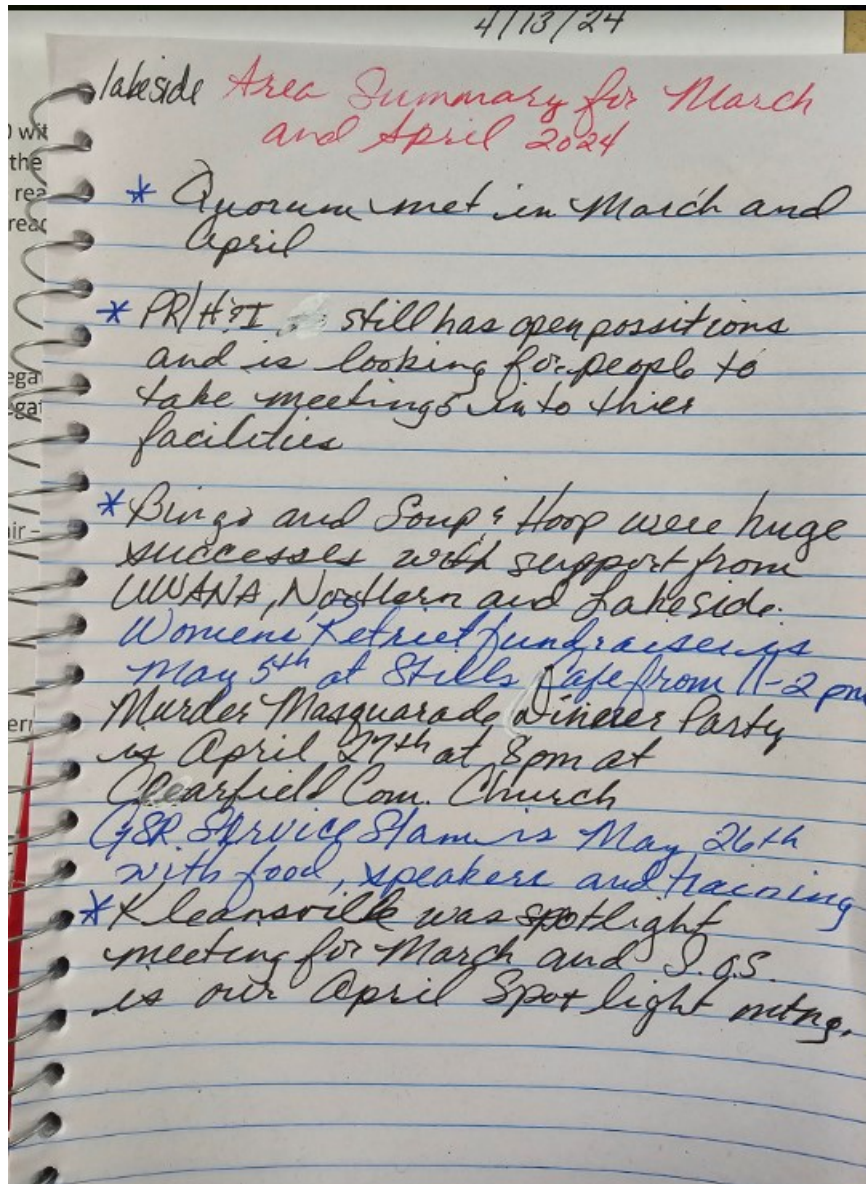 4/13/24
lakeside Area Summary for March
and April 2024
* Quorum met in March and
April
* PR/H&I still has open possitions
and is looking for people to
take meetings into thier
facilities
* Bingo and Soup & Hoop were huge
successes with support from
UWANA, Northern and Lakeside.
Womens Retriet fundraiser is
May 5th at Stella's Cafe from 11-2 pm
Murder Masquarade Dinerer Party
is April 27th at 8pm at
Clearfield Com. Church
GSR Service Slam is May 26th
with food, speakers and training
* Kleansville was spotlight
meeting for March and S.O.S.
is our April Spot light mtng.
wit
the
rea
read
ega
egat
air -